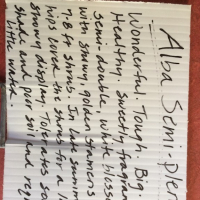 Alba Semi-plen
Wonderful. Tough. Big.
Healthy. Sweetly fragran
semi-double, white blosso
with showy, golden stamens
7-8 ft shrub. In late summ
hips cover the shrub for a l
showy display. Tolerates so
shade and poor soil and req
little water.